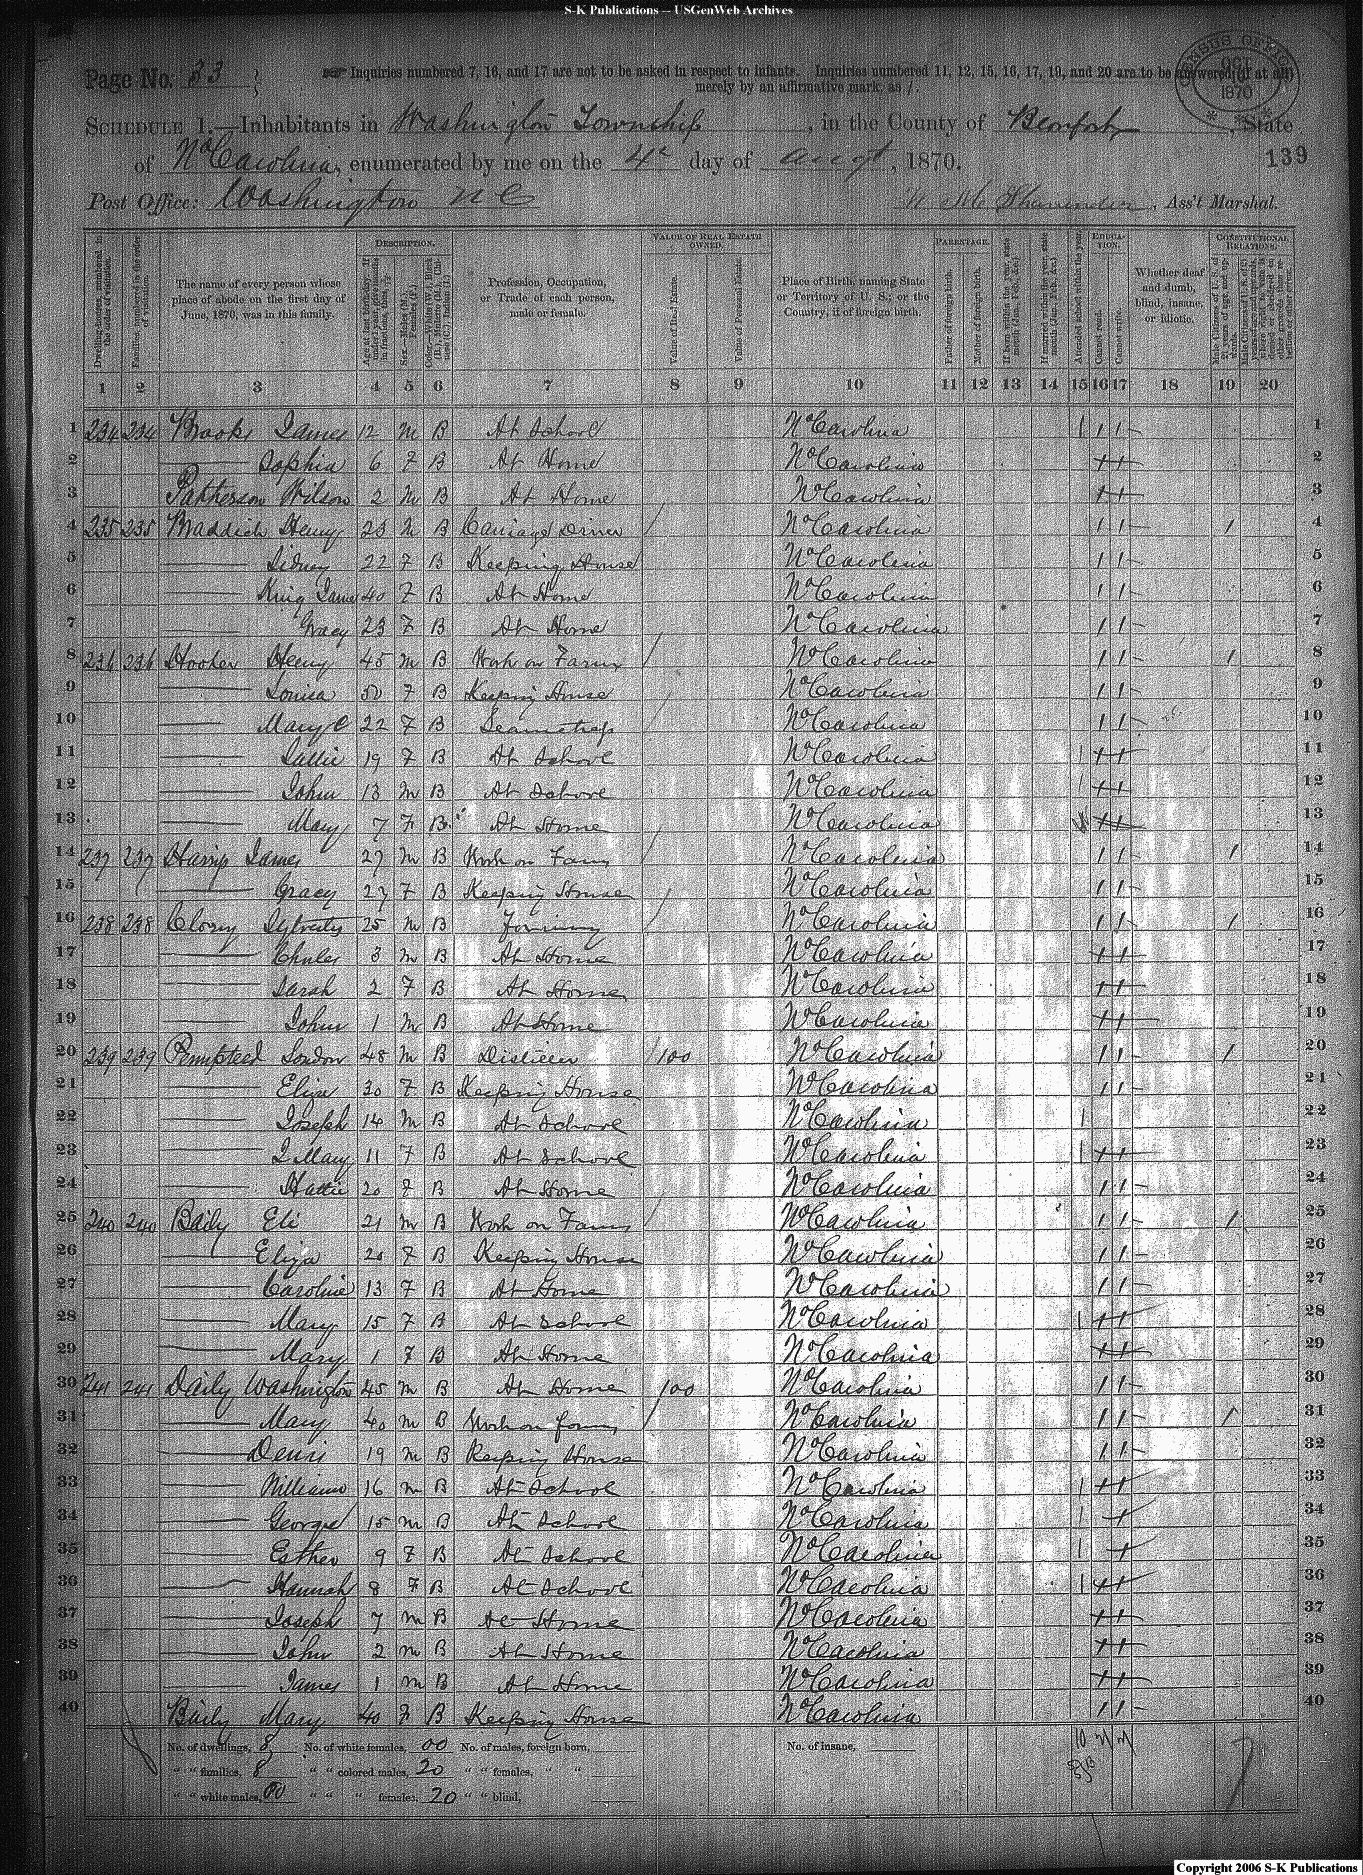 S-K Publications -- USGenWeb Archives
Page No. 33
Inquiries numbered 7, 16, and 17 are not to be asked in respect to infants. Inquiries numbered 11, 12, 15, 16, 17, 19, and 20 are to be answered (if at all)
merely by an affirmative mark, as /.
CENSUS OFFICE OCT 1870
SCHEDULE 1.—Inhabitants in Washington Township, in the County of Beaufort, State
of No Carolina, enumerated by me on the 4th day of Augt, 1870.
139
Post Office: Washington N C
Ass't Marshal.
DESCRIPTION. VALUE OF REAL ESTATE OWNED. PARENTAGE. EDUCATION. CONSTITUTIONAL RELATIONS.
The name of every person whose place of abode on the first day of June, 1870, was in this family.
Profession, Occupation, or Trade of each person, male or female.
Value of Real Estate.
Value of Personal Estate.
Place of Birth, naming State or Territory of U. S.; or the Country, if of foreign birth.
Father of foreign birth.
Mother of foreign birth.
Attended school within the year.
Cannot read.
Cannot write.
Whether deaf and dumb, blind, insane, or idiotic.
1 2 3 4 5 6 7 8 9 10 11 12 13 14 15 16 17 18 19 20
1 234 234 Brooks James 12 M B At School No Carolina / / / 1
2 — Sophia 6 F B At Home No Carolina + + 2
3 Patterson Wilson 2 M B At Home No Carolina + + 3
4 235 235 Henry 23 M B Carriage Driver / No Carolina / / / 4
5 — Sidney 22 F B Keeping House No Carolina / / 5
6 — King Jane 40 F B At Home No Carolina / / 6
7 — Gracy 23 F B At Home No Carolina / / 7
8 236 236 Hooker Henry 45 M B Work on Farm / No Carolina / / / 8
9 — Louisa 50 F B Keeping House No Carolina / / 9
10 — Mary C 22 F B Seamstress No Carolina / / 10
11 — Sallie 19 F B At School No Carolina / + + 11
12 — John 13 M B At School No Carolina / + + 12
13 — Mary 7 F B At Home No Carolina + + 13
14 237 237 Harris James 27 M B Work on Farm / No Carolina / / / 14
15 — Gracy 27 F B Keeping House No Carolina / / 15
16 238 238 25 M B Farming / No Carolina / / / 16
17 — Charles 3 M B At Home No Carolina + + 17
18 — Sarah 2 F B At Home No Carolina + + 18
19 — John 1 M B At Home No Carolina + + 19
20 239 239 London 48 M B Distiller /100 No Carolina / / / 20
21 — Eliza 30 F B Keeping House No Carolina / / 21
22 — Joseph 14 M B At School No Carolina / 22
23 — Mary 11 F B At School No Carolina / + + 23
24 — Hattie 20 F B At Home No Carolina / / 24
25 240 240 Baily Eli 21 M B Work on Farm / No Carolina / / / 25
26 — Eliza 20 F B Keeping House No Carolina / / 26
27 — Caroline 13 F B At Home No Carolina / / 27
28 — Mary 15 F B At School No Carolina / + + 28
29 — Mary 1 F B At Home No Carolina + + 29
30 241 241 Daily Washington 45 M B At Home /100 No Carolina / / 30
31 — Mary 40 M B Work on farm / No Carolina / / / 31
32 — Denis 19 M B Keeping House No Carolina / / 32
33 — William 16 M B At School No Carolina / + + 33
34 — George 15 M B At School No Carolina / + 34
35 — Esther 9 F B At School No Carolina / + 35
36 — Hannah 8 F B At School No Carolina / + + 36
37 — Joseph 7 M B At Home No Carolina + + 37
38 — John 2 M B At Home No Carolina + + 38
39 — James 1 M B At Home No Carolina + + 39
40 Baily Mary 40 F B Keeping House No Carolina / / 40
No. of dwellings, 8 No. of white females, 00 No. of males, foreign born, No. of insane,
" " families, 8 " " colored males, 20 " " females, " "
" " white males, 00 " " " females, 20 " " blind,
Copyright 2006 S-K Publications